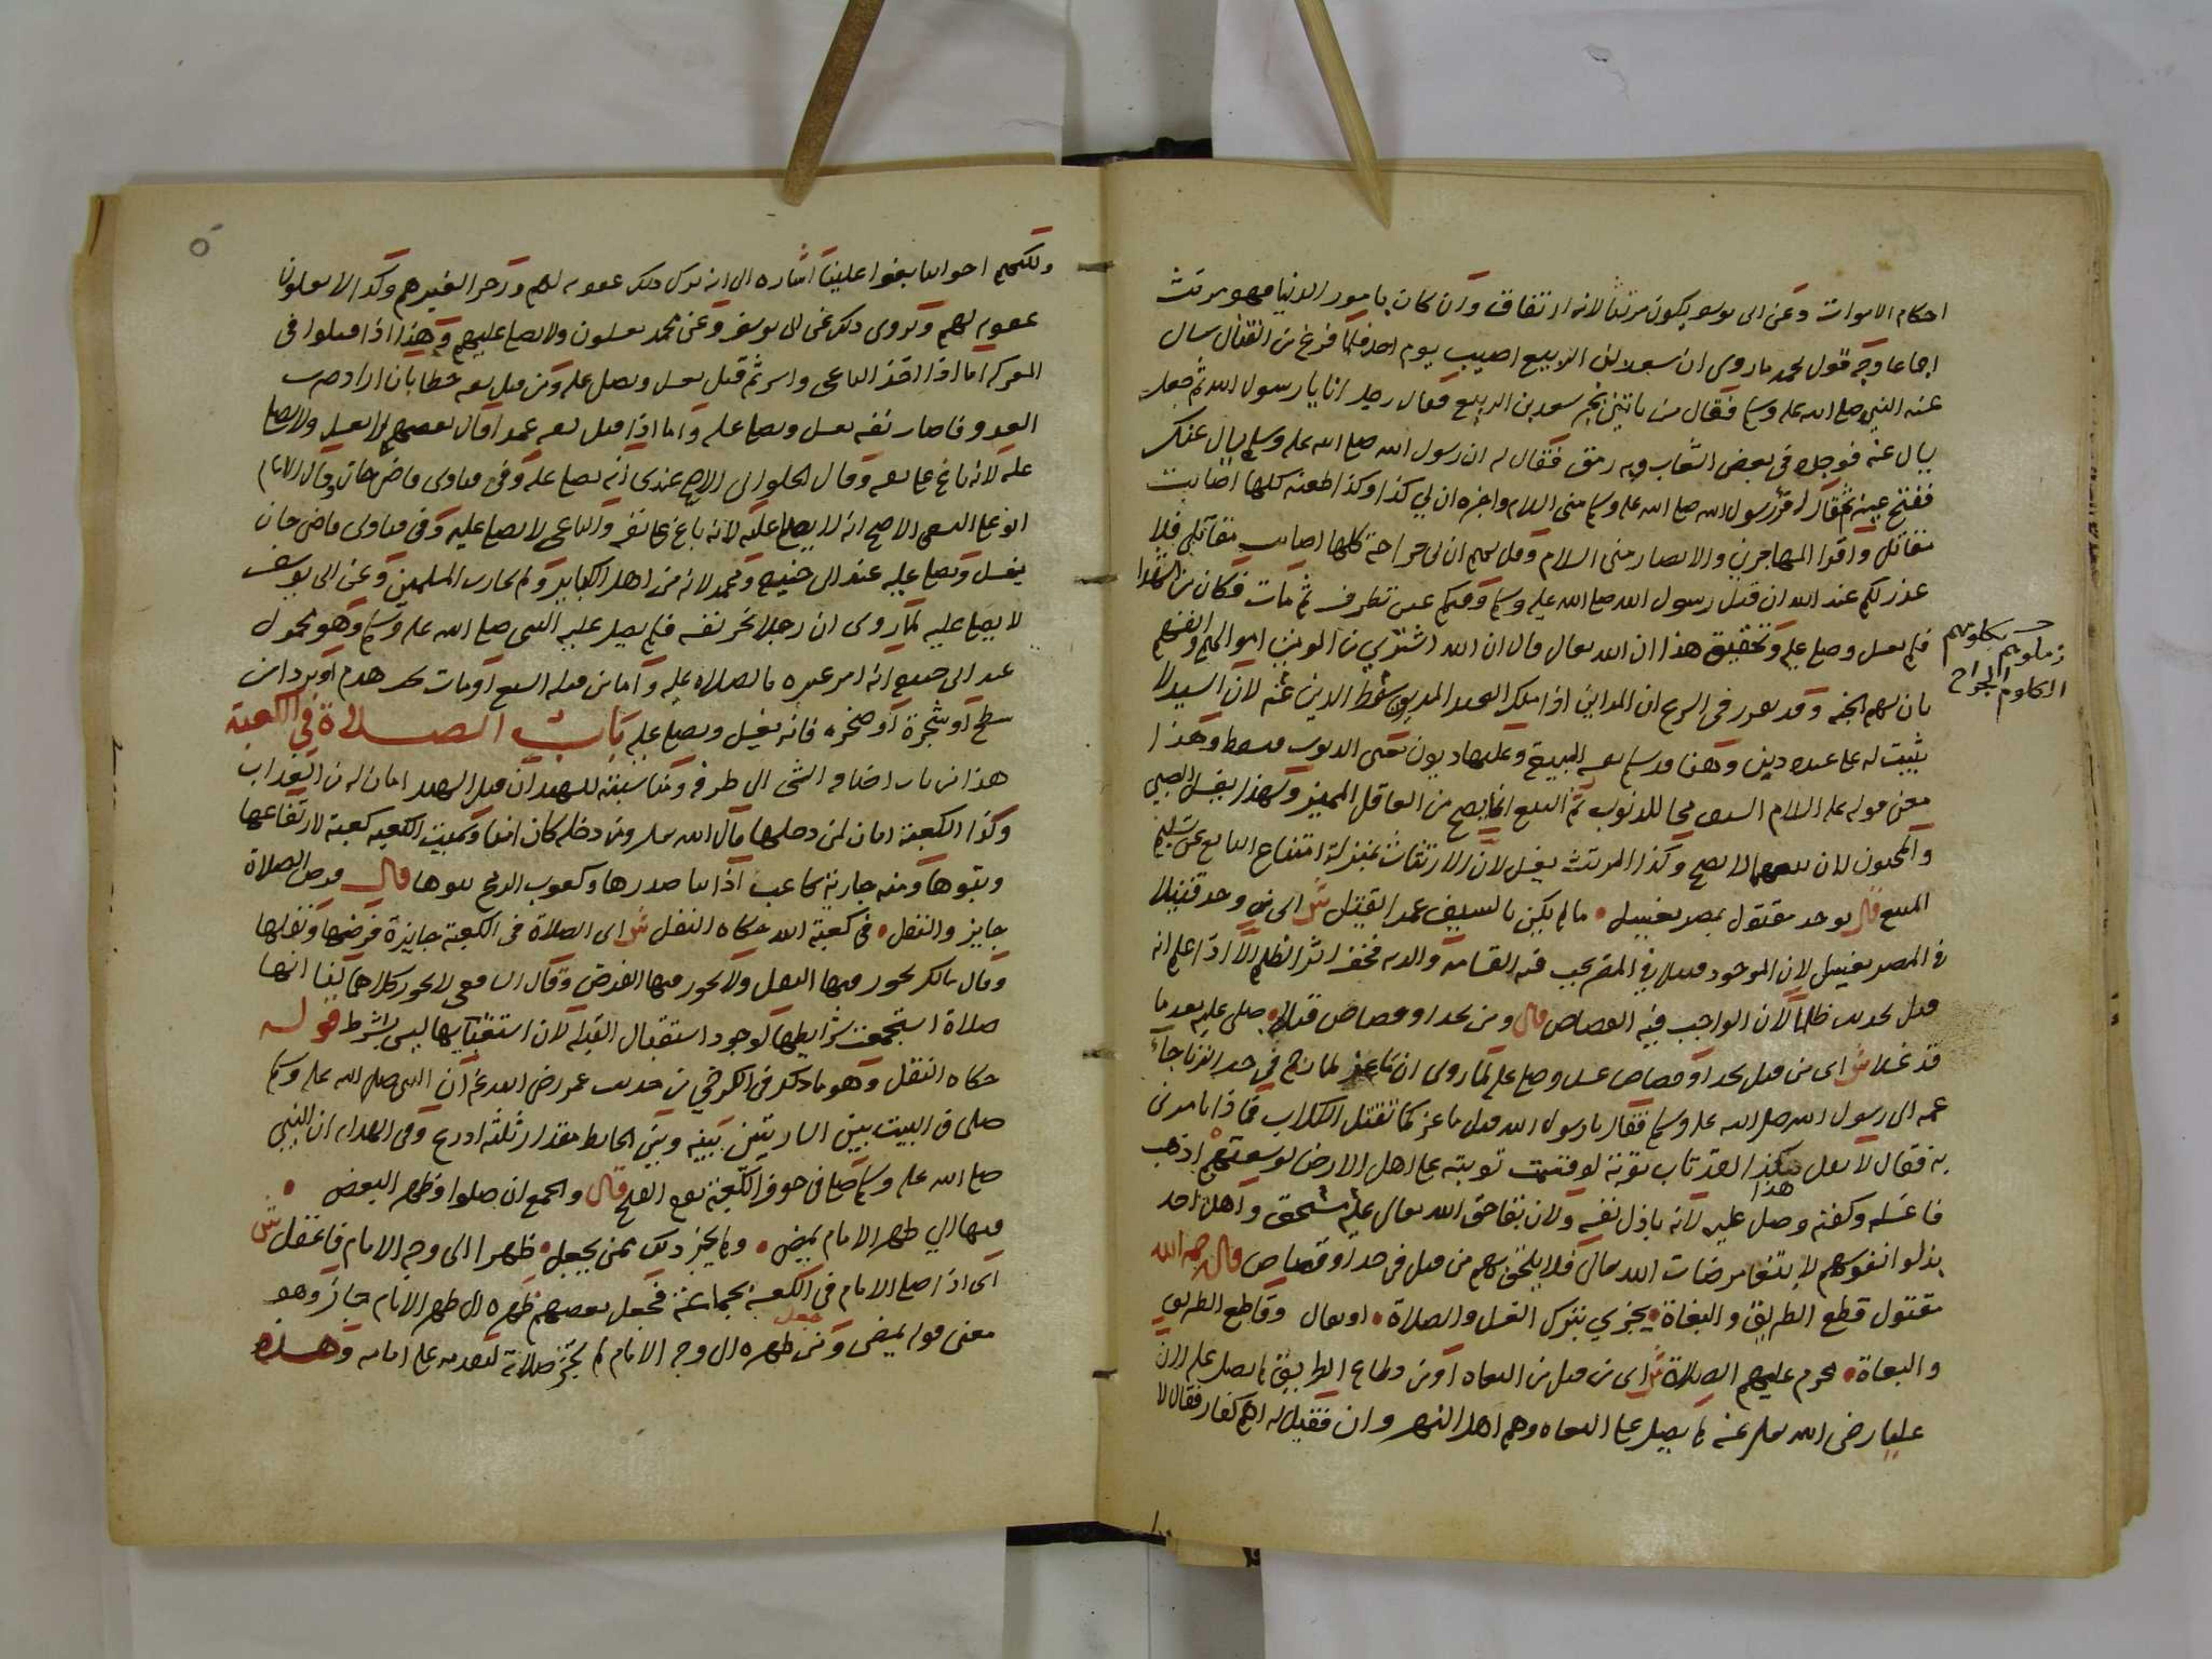 احكام الاموات وعن ابى يوسف يكون مرتثا لانه ارتفاق وان كان بامور الدنيا فهو مرتث
اجماعا وجه قول محمد ما روى ان سعد بن الربيع اصيب يوم احد فلما فرغ من القتال سال
عنه النبى صلى الله عليه وسلم فقال من ياتينى بخبر سعد بن الربيع فقال رجل انا يا رسول الله ثم جعل
يسال عنه فوجده فى بعض الشعاب وبه رمق فقال له ان رسول الله صلى الله عليه وسلم يسال عنك
ففتح عينه ثم قال اقرئ رسول الله صلى الله عليه وسلم منى السلام واخبره ان بي كذا وكذا طعنة كلها اصابت
مقاتلى واقرا المهاجرين والانصار منى السلام وقل لهم ان بى جراحة كلها اصابت مقاتلى فلا
عذر لكم عند الله ان قتل رسول الله صلى الله عليه وسلم وفيكم عين تطرف ثم مات فكان من الشهدا
فلم يغسل وصلى عليه وتحقيق هذا ان الله تعالى قال ان الله اشترى من المومنين اموالهم وانفسهم
بان لهم الجنة وقد تقرر فى الشرع ان المداين اذا ملك العبد المديون سقط الدين عنه لان السيد لا
يثبت له على عبده دين وهنا قد سلم نفسه المبيعة وعليها ديون تعين الذنوب فسقط وهذا
معنى قوله عليه السلام السيف محا للذنوب ثم البيع انما يصح من العاقل المميز ولهذا يغسل الصبى
والمجنون لان بيعهما لا يصح وكذا المرتث يغسل لان الارتثاث بمنزلة امتناع البايع عن تسليم
المبيع قال يوجد مقتول بمصر يغسل ما لم يكن بالسيف عمدا يقتل ش اى من وجد قتيلا
فى المصر يغسل لان الموجود قتيلا فى المصر يجب فيه القسامة والدية فخف اثر الظلم الا اذا علم انه
قتل بحديدة ظلما لان الواجب فيه القصاص قال ومن بحد او قصاص قتلا صلى عليه بعد ما
قد غسلا ش اى من قتل بحد او قصاص غسل وصلى عليه لما روى ان ماعزا لما رجم فى حد الزنا جاء
عمه الى رسول الله صلى الله عليه وسلم فقال يا رسول الله قتل ماعز كما تقتل الكلاب فماذا تامرنى
به فقال لا تقل هكذا لقد تاب توبة لو قسمت توبته على اهل الارض لوسعتهم اذهب
هذا
فاغسله وكفنه وصل عليه لانه باذل نفسه ولايفاء حق الله تعالى عليه مستحق واهل احد
بذلوا انفسهم لابتغا مرضات الله تعالى فلا يلحق بهم من قتل فى حد او قصاص قال رحمه الله
مقتول قطع الطريق والبغاة يجزي بترك الغسل والصلاة او يقال وقاطع الطريق
والبغاة يحرم عليهم الصلاة ش اى من قتل من البغاة او من قطاع الطريق لم يصل عليه لان
عليا رضى الله تعالى عنه لم يصل على البغاة وهم اهل النهروان فقيل له اهم كفار فقال لا
بكلومهم
زملوهم
الكلوم الجراح
ولكنهم اخواننا بغوا علينا اشارة الى انه ترك ذلك عقوبة لهم وزجرا لغيرهم وكذا لا يغسلون
عقوبة لهم ويروى ذلك عن ابى يوسف وعن محمد يغسلون ولا يصلى عليهم وهذا اذا قتلوا فى
المعركة اما اذا اخذ الباغى واسر ثم قتل يغسل ويصلى عليه ومن قتل نفسه خطا بان اراد ضرب
العدو فاصاب نفسه يغسل ويصلى عليه واما اذا قتل نفسه عمدا قال بعضهم لا يغسل ولا يصلى
عليه لانه باغ على نفسه وقال الحلوانى الاصح عندى انه يصلى عليه وفى فتاوى قاضى خان وقال الامام
ابو على السغدى الاصح انه لا يصلى عليه لانه باغ على نفسه والباغى لا يصلى عليه وفى فتاوى قاضى خان
يغسل ويصلى عليه عند ابى حنيفة ومحمد لانه من اهل الكباير ولم يحارب المسلمين وعن ابى يوسف
لا يصلى عليه لما روى ان رجلا نحر نفسه فلم يصل عليه النبى صلى الله عليه وسلم وهو محمول
عند ابى حنيفة انه امر غيره بالصلاة عليه واما من قتله السبع او مات تحت هدم او تردا من
سطح او شجرة او صخرة فانه يغسل ويصلى عليه باب الصلاة فى الكعبة
هذا من باب اضافة الشى الى ظرفه ومناسبته للشهيد ان قتل الشهيد امان له من العذاب
وكذا الكعبة امان لمن دخلها قال الله تعالى ومن دخله كان امنا وسميت الكعبة كعبة لارتفاعها
ونتوها ومنه جارية كاعب اذا نتا صدرها وكعوب الرمح نتوها قال فرض الصلاة
جايز والنفل فى كعبة الله حكاه النقل ش اى الصلاة فى الكعبة جايزة فرضها ونفلها
وقال مالك يجوز فيها النفل ولا يجوز فيها الفرض وقال الشافعى لا يجوز كلاهما لنا انها
صلاة استجمعت شرايطها لوجود استقبال القبلة لان استيعابها ليس بشرط قوله
حكاه النقل وهو ما ذكر فى الكرخي من حديث عمر رضى الله عنه ان النبى صلى الله عليه وسلم
صلى فى البيت بين الساريتين بينه وبين الحايط مقدار ثلثة اذرع وفى الهداية ان النبى
صلى الله عليه وسلم صلى فى جوف الكعبة يوم الفتح قال والجمع ان صلوا فظهر البعض
فيها الى ظهر الامام يمضى ولم يجز ذلك ممن يجعل ظهرا الى وجه الامام فاغفل ش
اى اذا صلى الامام فى الكعبة بجماعة فجعل بعضهم ظهره الى ظهر الامام جاز وهو
جعل
معنى قوله يمضى ومن ظهره الى وجه الامام لم تجز صلاته لتقدمه على امامه وهذه